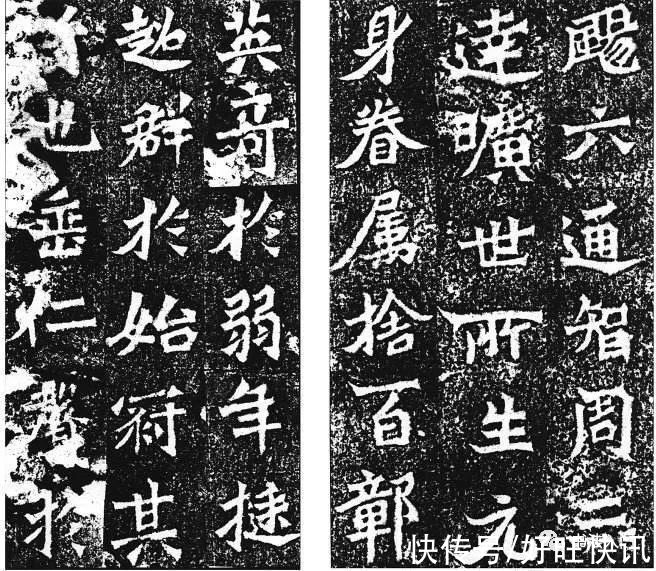 颺六通智周三
達曠世所生元
身眷属捨百鄣
英奇於弱年挺
超群於始冠其
也垂仁聲於
快传号/好旺快讯